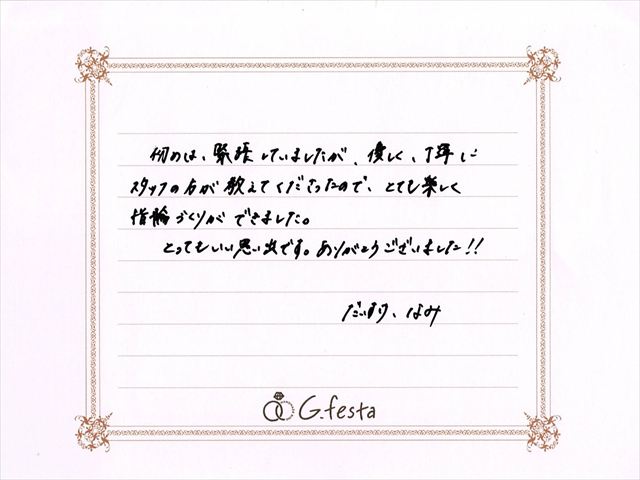 初めは、緊張していましたが、優しく、丁寧に
スタッフの方が教えてくださったので、とても楽しく
指輪づくりができました。
とってもいい思い出です。ありがとうございました!!
なみ
G.festa